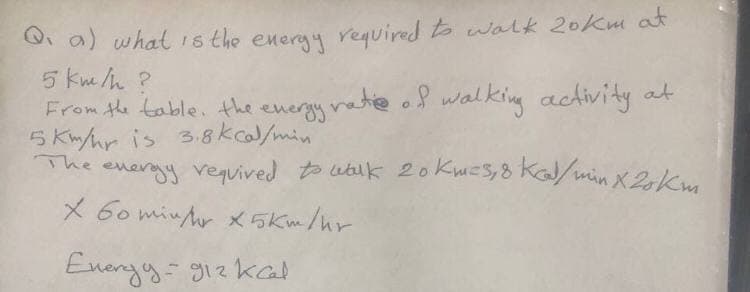 Q. a) what is the energy required to walk 20 Km at
5 Km/h ?
From the table. the energy rate of walking activity at
5 Km/hr is 3.8 kcal/min
The energy required to walk 20 Km=3,8 Kcal/min X 20 Km
X 60 min/hr X 5Km/hr
Energy = 912 kcal